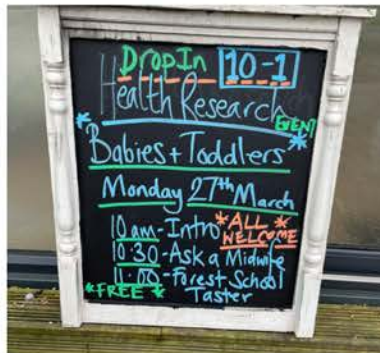 Drop In 10-1
Health Research
EVENT
*Babies + Toddlers*
Monday 27th March
10am - Intro *ALL *
WELCOME
10.30 - Ask a Midwife
11.00 - Forest School
*FREE* Taster